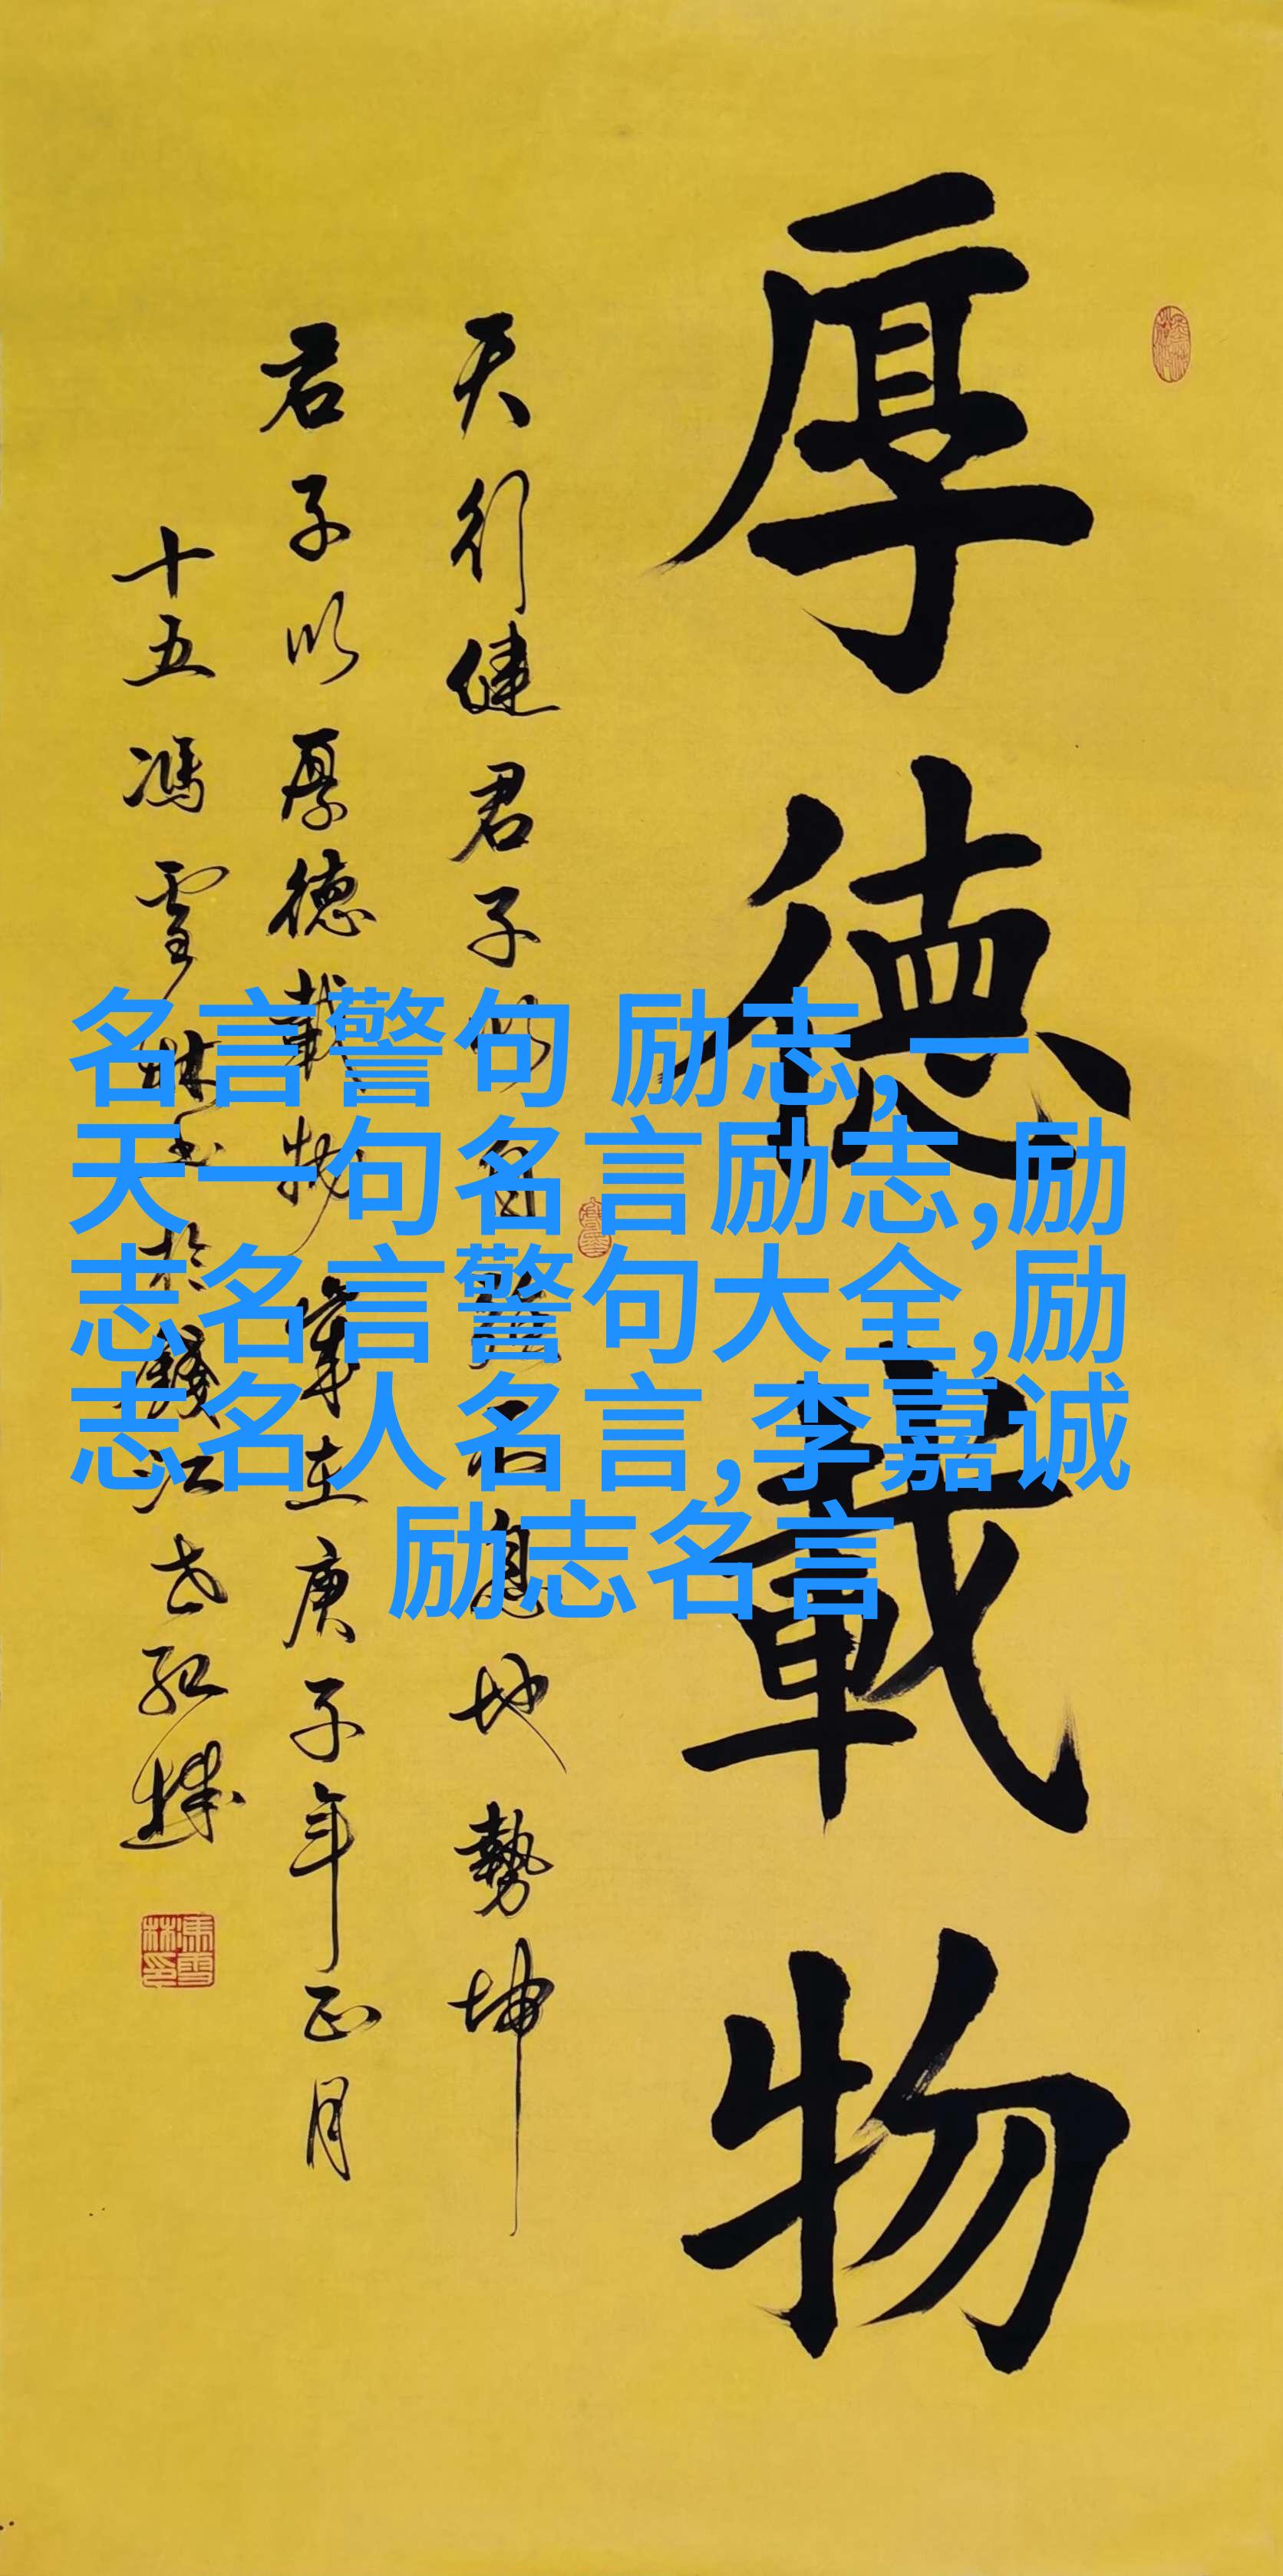 厚德載物
天行健君子以自強不息地勢坤
君子以厚德載物歲在庚子年正月
十五馮雪林書於錢江世紀城
馮雪林印
名言警句 励志,一
天一句名言励志,励
志名言警句大全,励
志名人名言,李嘉诚
励志名言